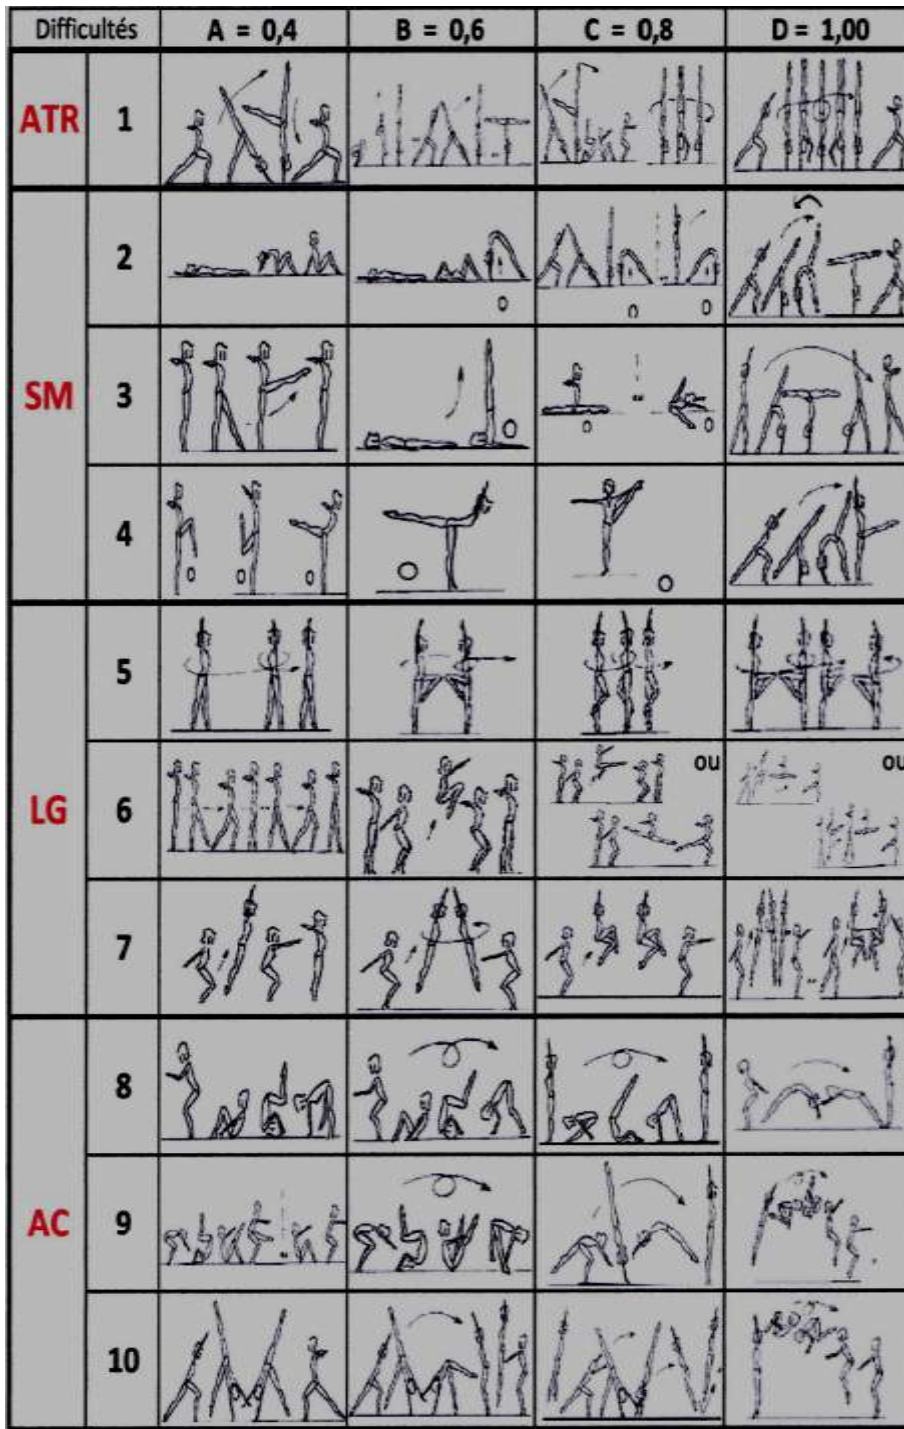 Difficultés A = 0,4 B = 0,6 C = 0,8 D = 1,00
ATR 1
2
SM 3
4
5
LG 6 ou ou
7
8
AC 9
10